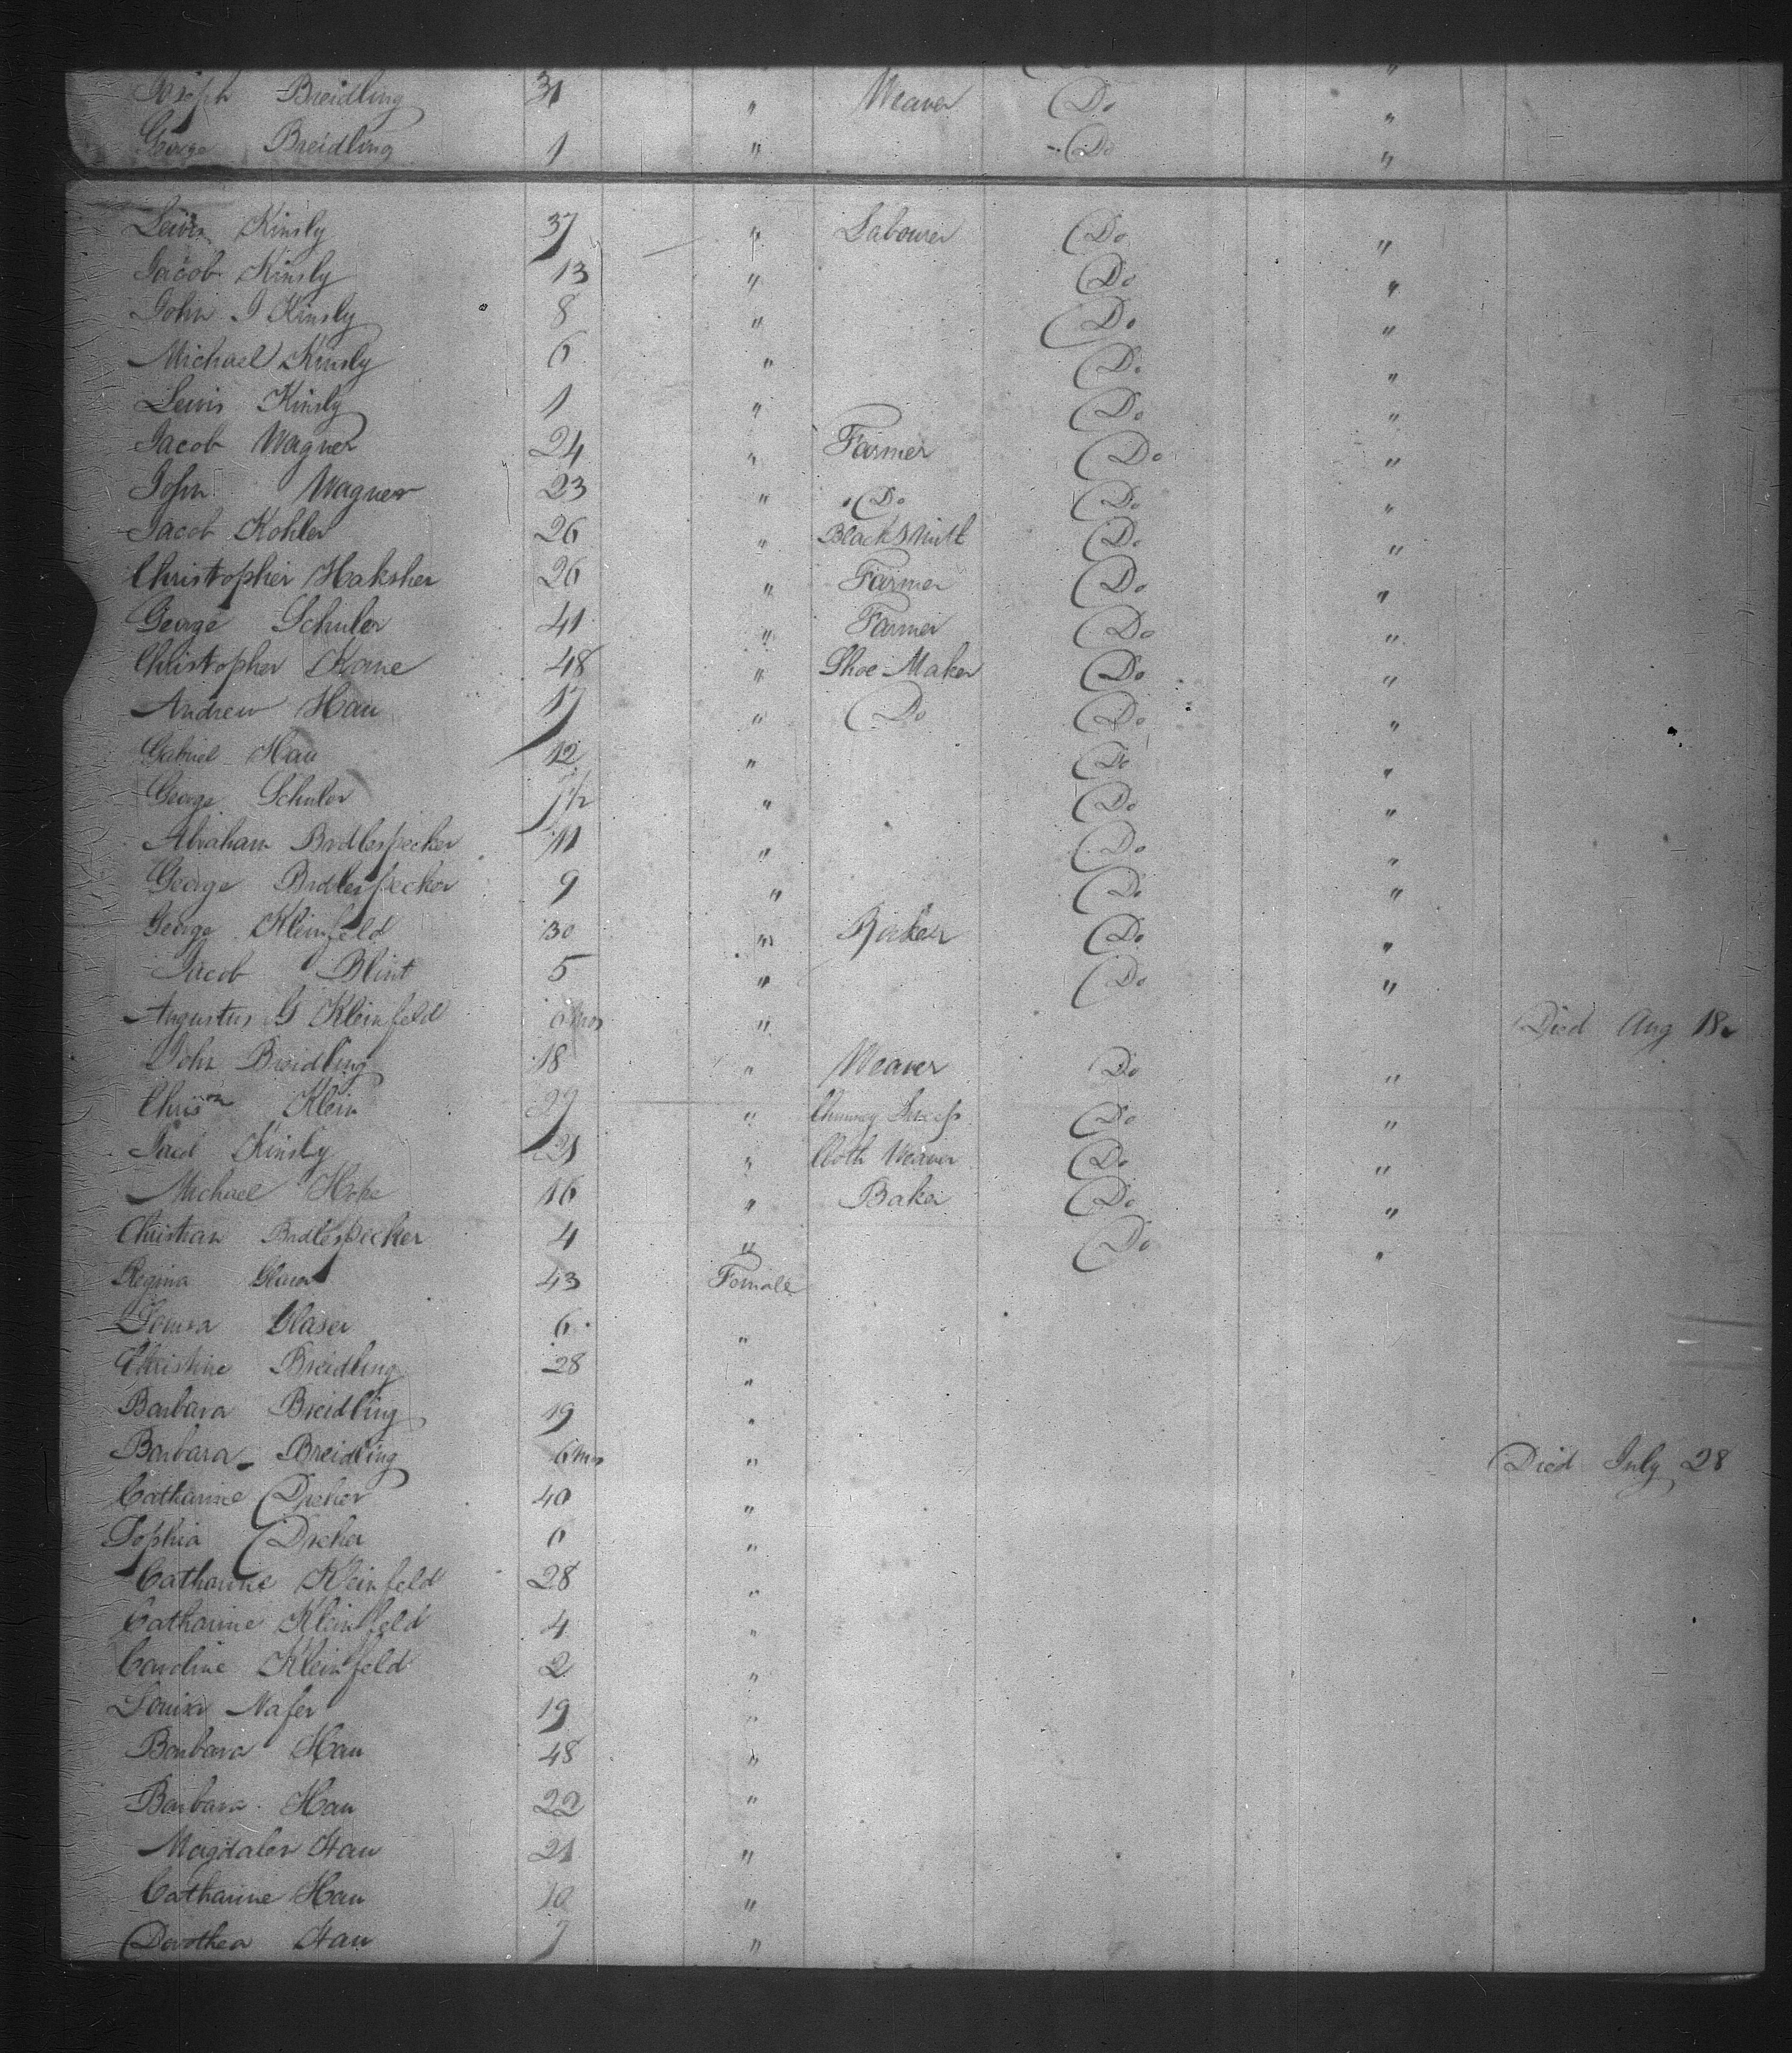 Joseph Breidling 31 " Weaver Do "
George Breidling 1 " Do "
Lewis Kinsly 37 " Labourer Do "
Jacob Kinsly 13 " Do "
John J Kinsly 8 " Do "
Michael Kinsly 6 " Do "
Lewis Kinsly 1 " Do "
Jacob Wagner 24 " Farmer Do "
John Wagner 23 " Do Do "
Jacob Kohler 26 " BlackSmith Do "
Christopher Haksher 26 " Farmer Do "
George Schuler 41 " Farmer Do "
Christopher 48 " Shoe-Maker Do "
Andrew Hau 17 " Do Do "
Gabriel Hau 12 " Do "
George Schuler " Do "
Abraham Badlespecker 11 " Do "
George Badlespecker 9 " Do "
George Kleinfeld 30 " Baker Do "
Jacob Blint 5 " Do "
Augustus G Kleinfeld 6 mos " Died Aug 18
John Breidling 18 " Weaver Do "
Chrison Klein 29 " Chimney Sweep Do "
Jacob Kinsly 21 " Cloth Weaver Do "
Michael 16 " Baker Do "
Christian Badlespecker 4 " Do "
Regina 43 Female
Louisa Glaser 6 "
Christine Breidling 28 "
Barbara Breidling 19 "
Barbara Breidling 6 mos " Died July 28
Catharine Dreher 40 "
Sophia Dreher 6 "
Catharine Kleinfeld 28 "
Catharine Kleinfeld 4 "
Caroline Kleinfeld 2 "
Louisa Nafer 19 "
Barbara Hau 48 "
Barbara Hau 22 "
Magdalen Hau 21 "
Catharine Hau 10 "
Dorothea Hau 7 "